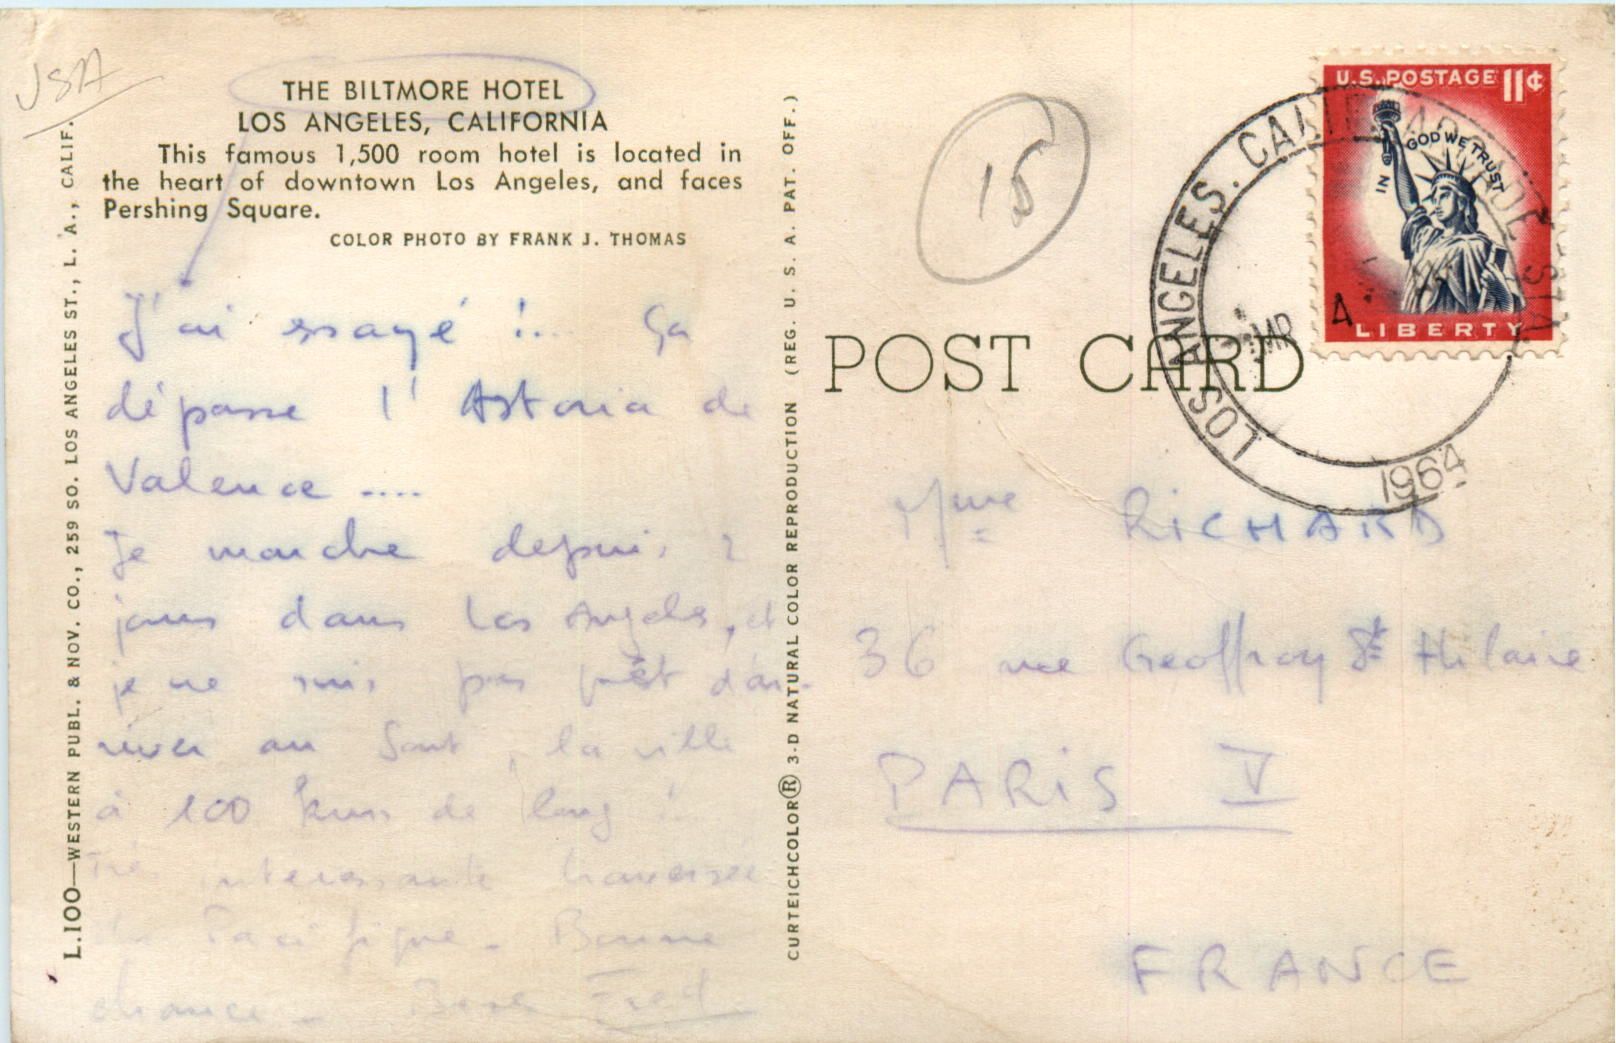 USA
THE BILTMORE HOTEL
LOS ANGELES, CALIFORNIA
This famous 1,500 room hotel is located in
the heart of downtown Los Angeles, and faces
Pershing Square.
COLOR PHOTO BY FRANK J. THOMAS
J'ai essayé !... Ça
dépasse l'Astoria de
Valence ....
Je marche depuis 2
jours dans Los Angeles, et
je ne suis pas prêt d'ar-
river au bout, la ville
a 100 kms de long !..
Très interessante traversée
du Pacifique - Bonne
chance - Fred
L.100—WESTERN PUBL. & NOV. CO., 259 SO. LOS ANGELES ST., L. A., CALIF.
CURTEICHCOLOR® 3-D NATURAL COLOR REPRODUCTION (REG. U. S. A. PAT. OFF.)
15
POST CARD
U.S. POSTAGE 11¢
IN GOD WE TRUST
LIBERTY
LOS ANGELES. CALIF. ARCADE STA.
MAR 4
1964
Mme RICHARD
36 rue Geoffroy St Hilaire
PARIS V
FRANCE